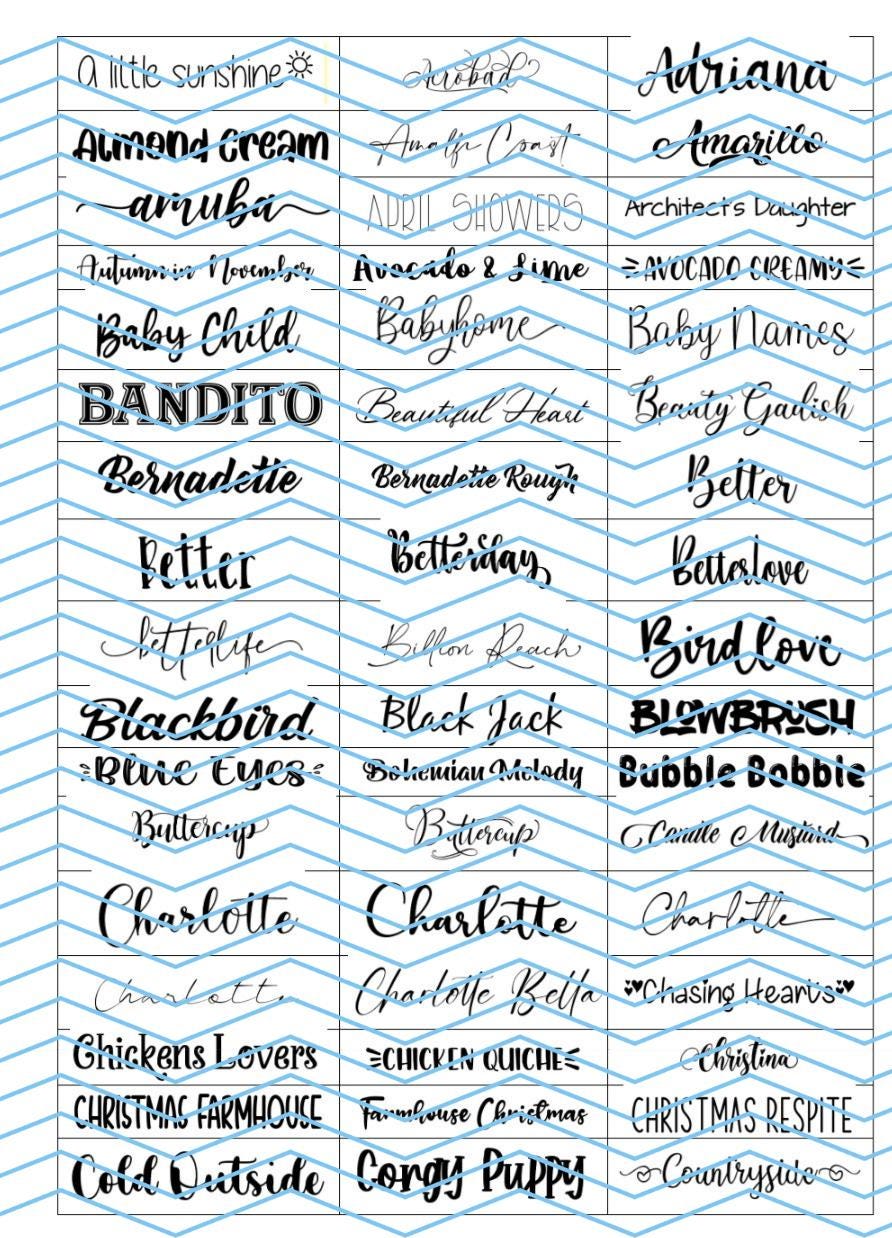 A little sunshine Acrobad Adriana
Almond Cream Amalfi Coast Amarillo
aruba APRIL SHOWERS Architect's Daughter
Autumn in November Avocado & Lime AVOCADO CREAMY
Baby Child Babyhome Baby Names
BANDITO Beautiful Heart Beauty Gadish
Bernadette Bernadette Rough Better
Better Betterday Betterlove
betterlife Billion Reach Bird love
Blackbird Black Jack BLOWBRUSH
Blue Eyes Bohemian Melody Bubble Bobble
Buttercup Buttercup Candle Mustard
Charlotte Charlotte Charlotte
Charlotte Charlotte Bella Chasing Hearts
Chickens Lovers CHICKEN QUICHE Christina
CHRISTMAS FARMHOUSE Farmhouse Christmas CHRISTMAS RESPITE
Cold Outside Corgy Puppy Countryside